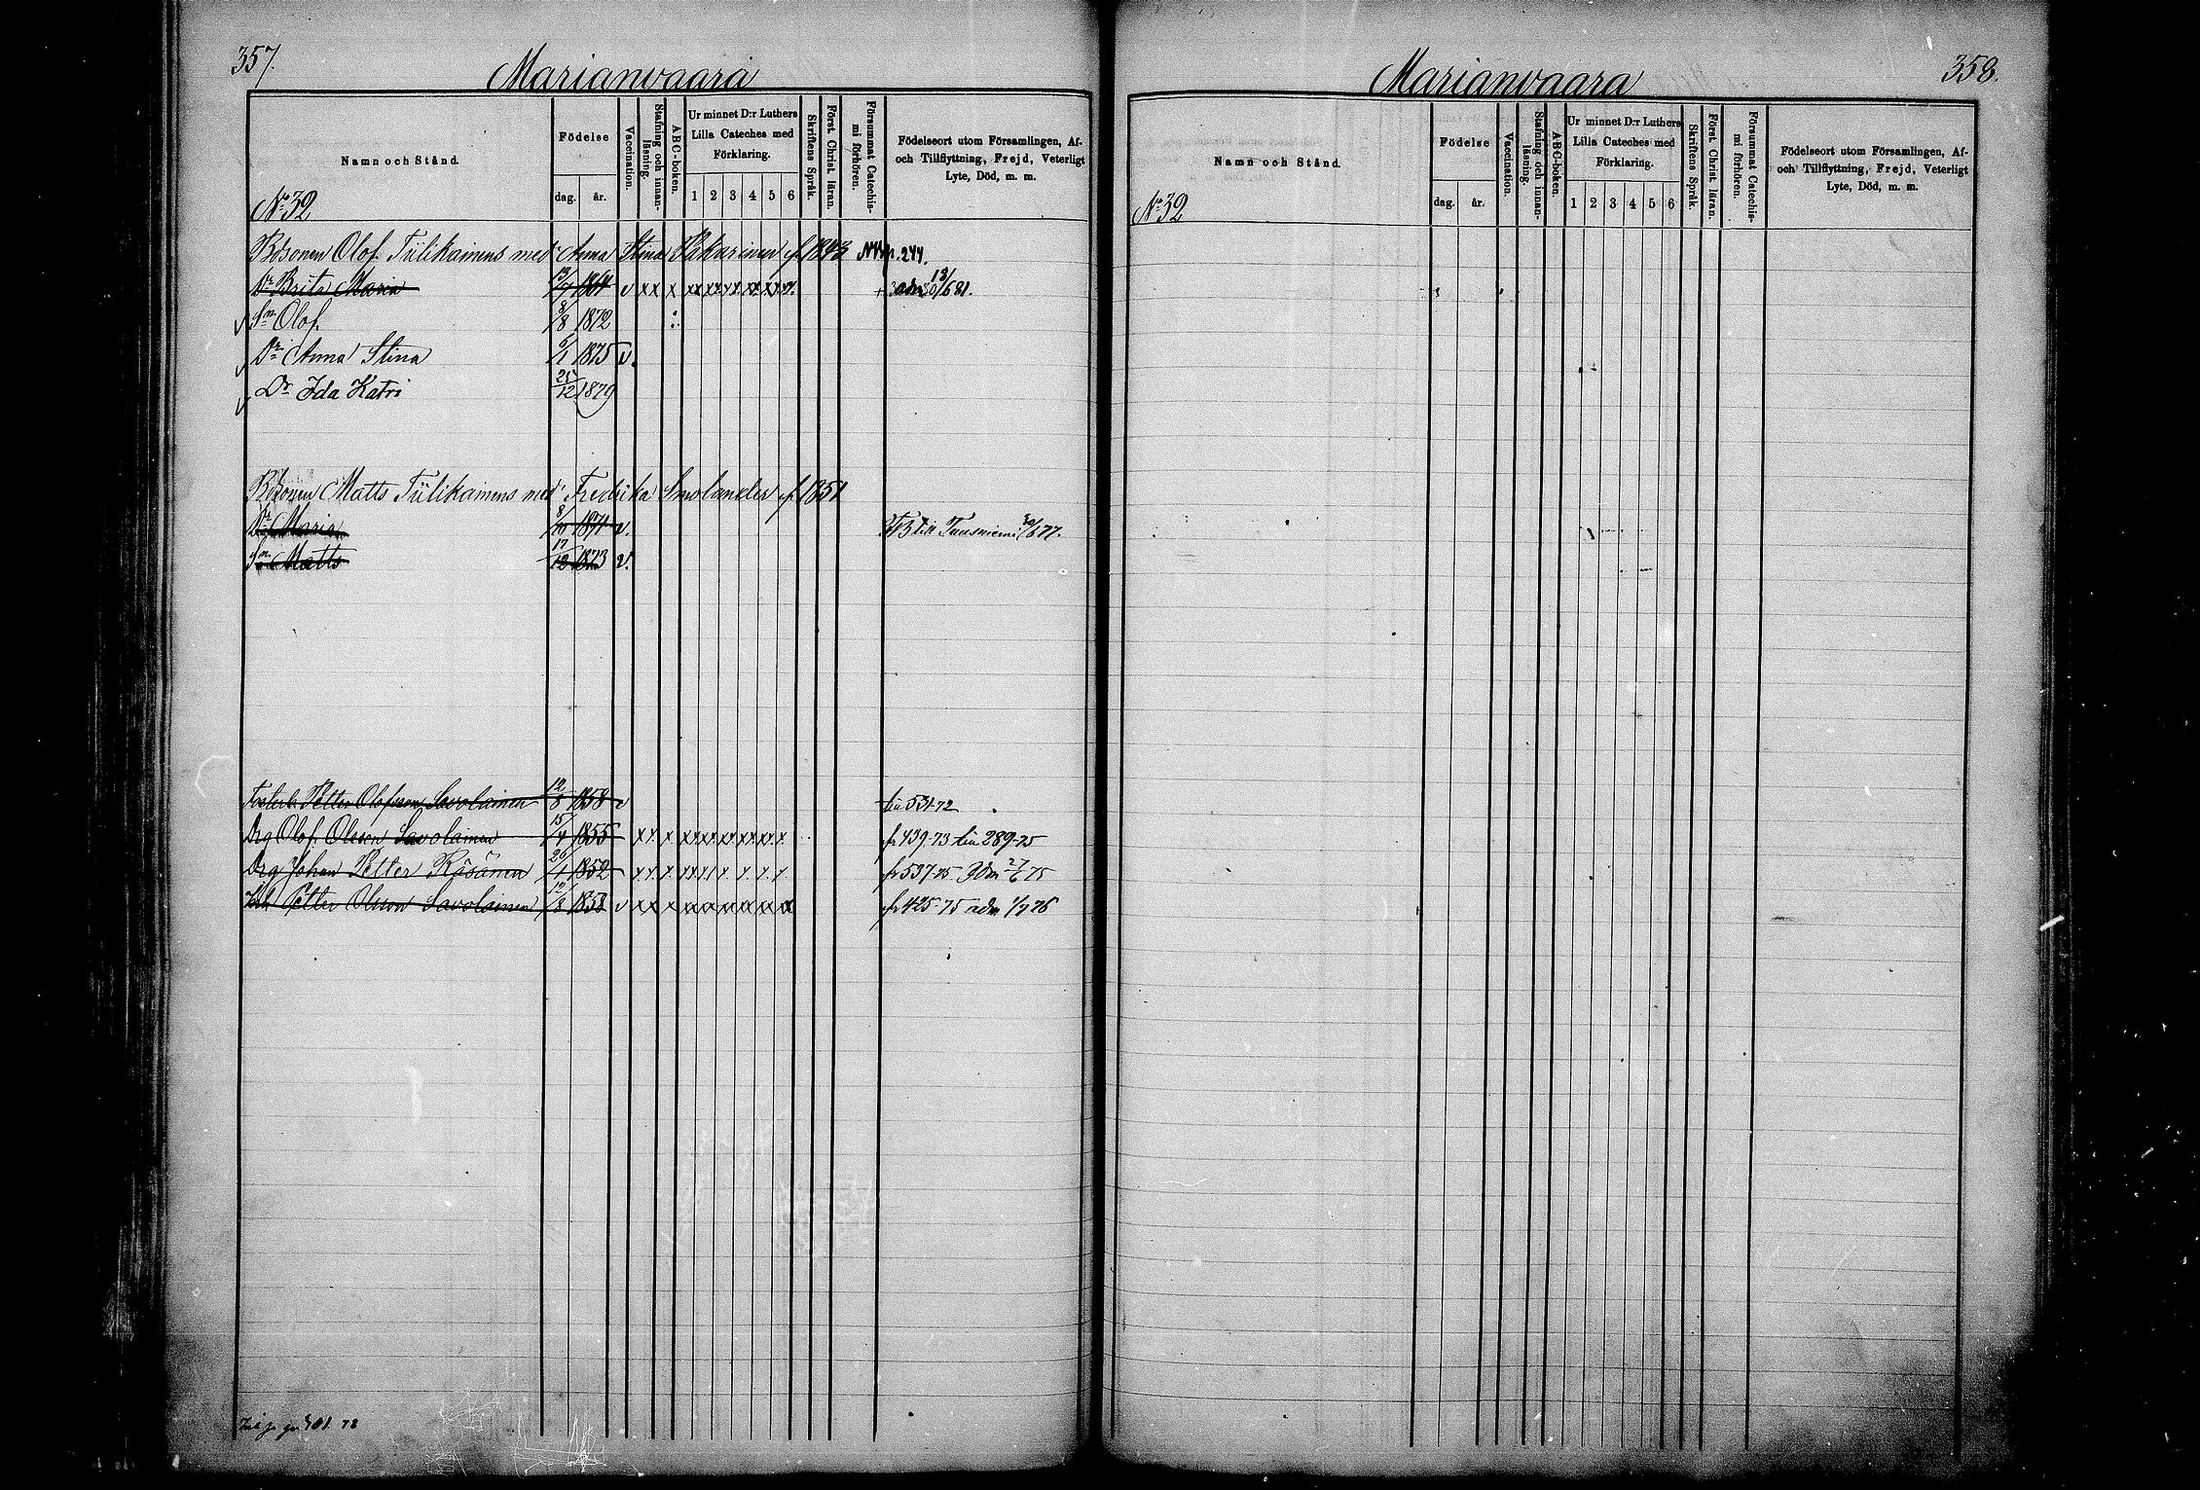 357.
Marianvaara
Namn och Stånd.
Födelse
dag. år.
Vaccination.
Stafning och innanläsning.
ABC-boken.
Ur minnet D:r Luthers
Lilla Cateches med
Förklaring.
1 2 3 4 5 6
Skriftens Språk.
Först. Christ. läran.
Försummat Catechismi förhören.
Födelseort utom Församlingen, Af-
och Tillflyttning, Frejd, Veterligt
Lyte, Död, m. m.
No 32
Olof Tiilikainens med Anna Stina f. 1843 244.
Dr Brita Maria 1861 v xx x
Sn Olof 8/8 1872
Dr Anna Stina 6/1 1875 v.
Dr Ida Katri 25/12 1879
Matts Tiilikainens med Fredrika Smolander f. 1851
Dr Maria 8/10 1871 v. till Tuusniemi
Sn Matts 17/12 1873 v.
Petter Olofsson Savolainen 12/8 1858 v 531-72
Drg Olof Olsson Savolainen 15/4 1855 fr 439-73 289-75
Drg Johan Petter Räsänen 26/1 1852 fr 537-75
Petter Olsson Savolainen 12/8 1858 v fr 425-75 adm 1/7 76
358.
Marianvaara
Namn och Stånd.
Födelse
dag. år.
Vaccination.
Stafning och innanläsning.
ABC-boken.
Ur minnet D:r Luthers
Lilla Cateches med
Förklaring.
1 2 3 4 5 6
Skriftens Språk.
Först. Christ. läran.
Försummat Catechismi förhören.
Födelseort utom Församlingen, Af-
och Tillflyttning, Frejd, Veterligt
Lyte, Död, m. m.
No 32